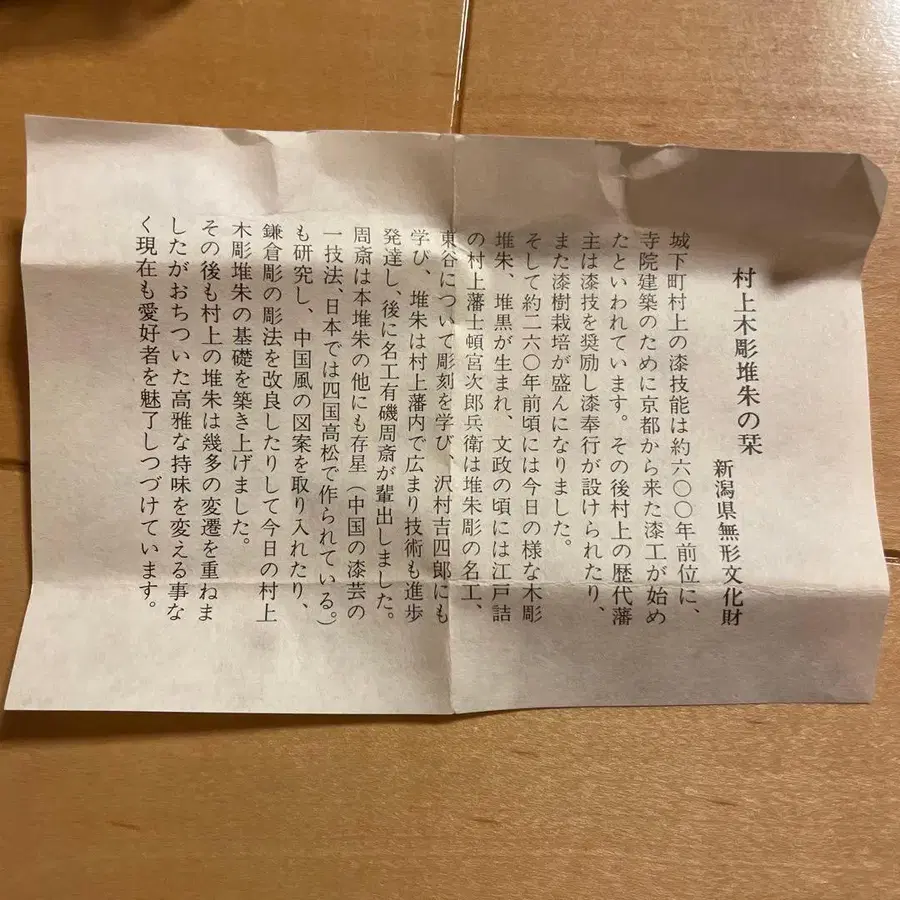 村上木彫堆朱の栞
新潟県無形文化財
城下町村上の漆技能は約六〇〇年前位に、
寺院建築のために京都から来た漆工が始め
たといわれています。その後村上の歴代藩
主は漆技を奨励し漆奉行が設けられたり、
また漆樹栽培が盛んになりました。
そして約二六〇年前頃には今日の様な木彫
堆朱、堆黒が生まれ、文政の頃には江戸詰
の村上藩士頓宮次郎兵衛は堆朱彫の名工、
東谷について彫刻を学び、沢村吉四郎にも
学び、堆朱は村上藩内で広まり技術も進歩
発達し、後に名工有磯周斎が輩出しました。
周斎は本堆朱の他にも存星（中国の漆芸の
一技法、日本では四国高松で作られている。）
も研究し、中国風の図案を取り入れたり、
鎌倉彫の彫法を改良したりして今日の村上
木彫堆朱の基礎を築き上げました。
その後も村上の堆朱は幾多の変遷を重ねま
したがおちついた高雅な持味を変える事な
く現在も愛好者を魅了しつづけています。